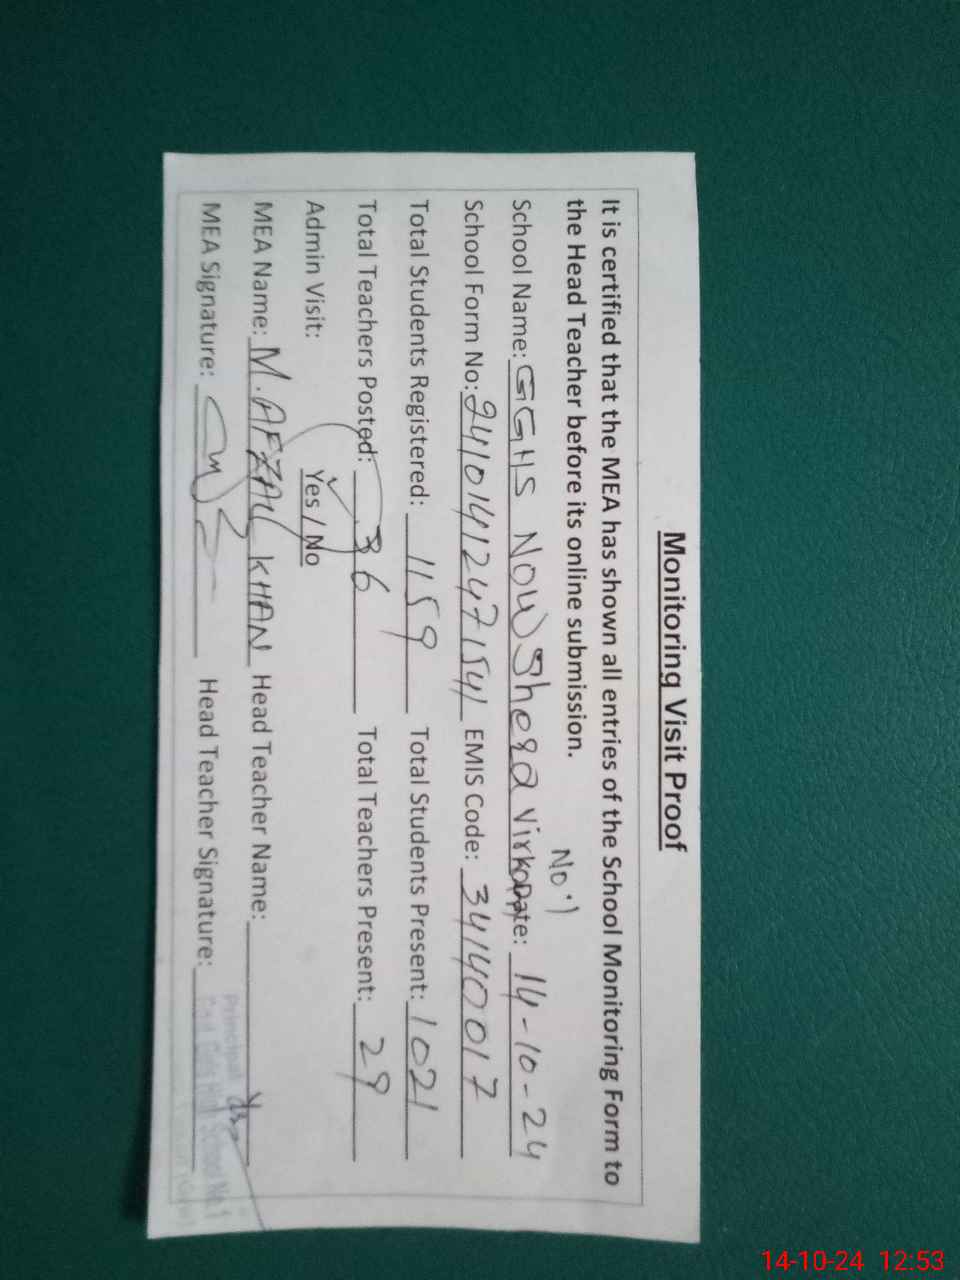 Monitoring Visit Proof
It is certified that the MEA has shown all entries of the School Monitoring Form to
the Head Teacher before its online submission.
No.1
School Name: GGHS Nowshera Virka Date: 14-10-24
School Form No: 24101412471541 EMIS Code: 34140017
Total Students Registered: 1159 Total Students Present: 1021
Total Teachers Posted: 36 Total Teachers Present: 29
Admin Visit: Yes / No
MEA Name: M. AFZAL KHAN Head Teacher Name:
MEA Signature: Head Teacher Signature:
Principal
Govt Girls High School No.1
14-10-24 12:53